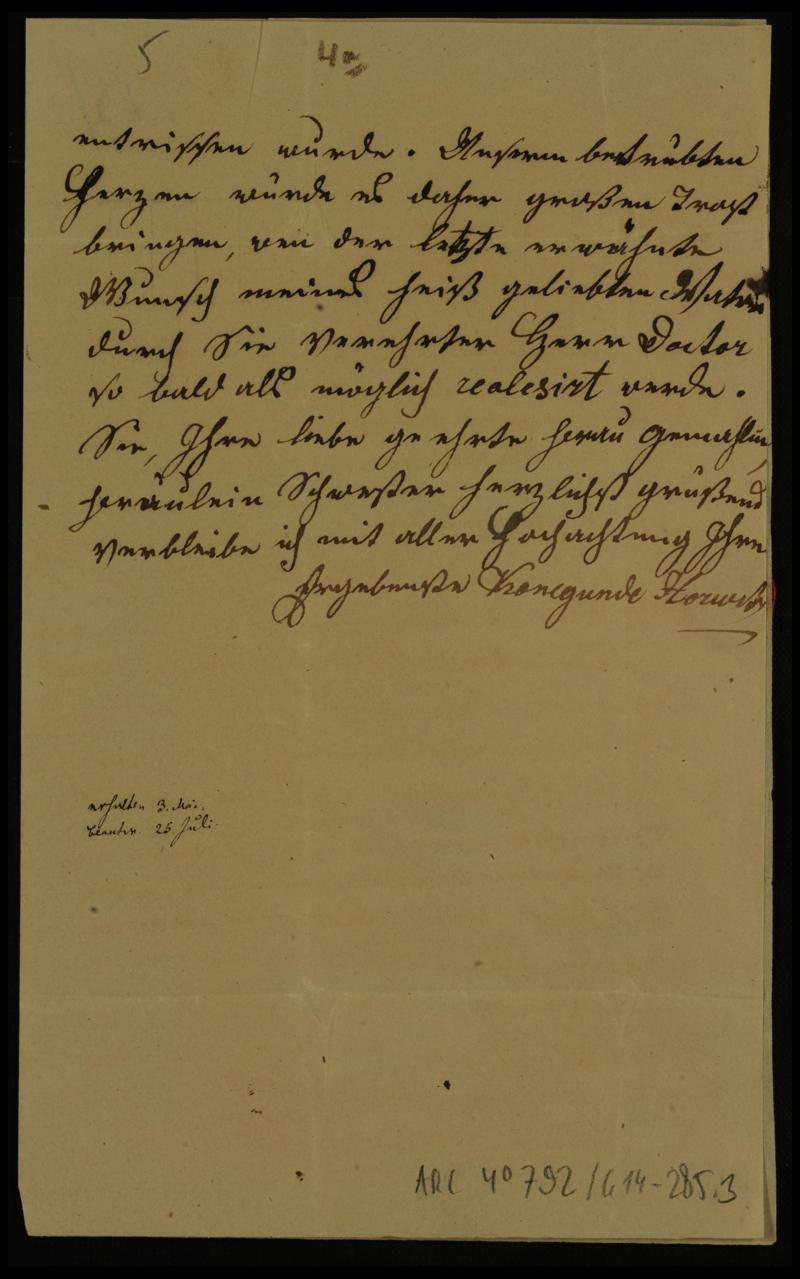 5 4a
entrissen wurde. Unserm betrübten
Herzen würde es daher großen Trost
bringen, wen der letzte erwähnte
Wunsch meines heiß geliebten Vaters
durch Sie Verehrter Herr Doctor
so bald als möglich realesirt werde.
Sie, Ihre liebe geehrte Frau Gemahlin,
Fräulein Schwester herzlichst grüßend
verbleibe ich mit aller Hochachtung Ihre
Ergebenste Konegunde Horwitz
erhalten 3. Mai.
beantw. 25 Juli.
ARC 4° 792/G14-285.3